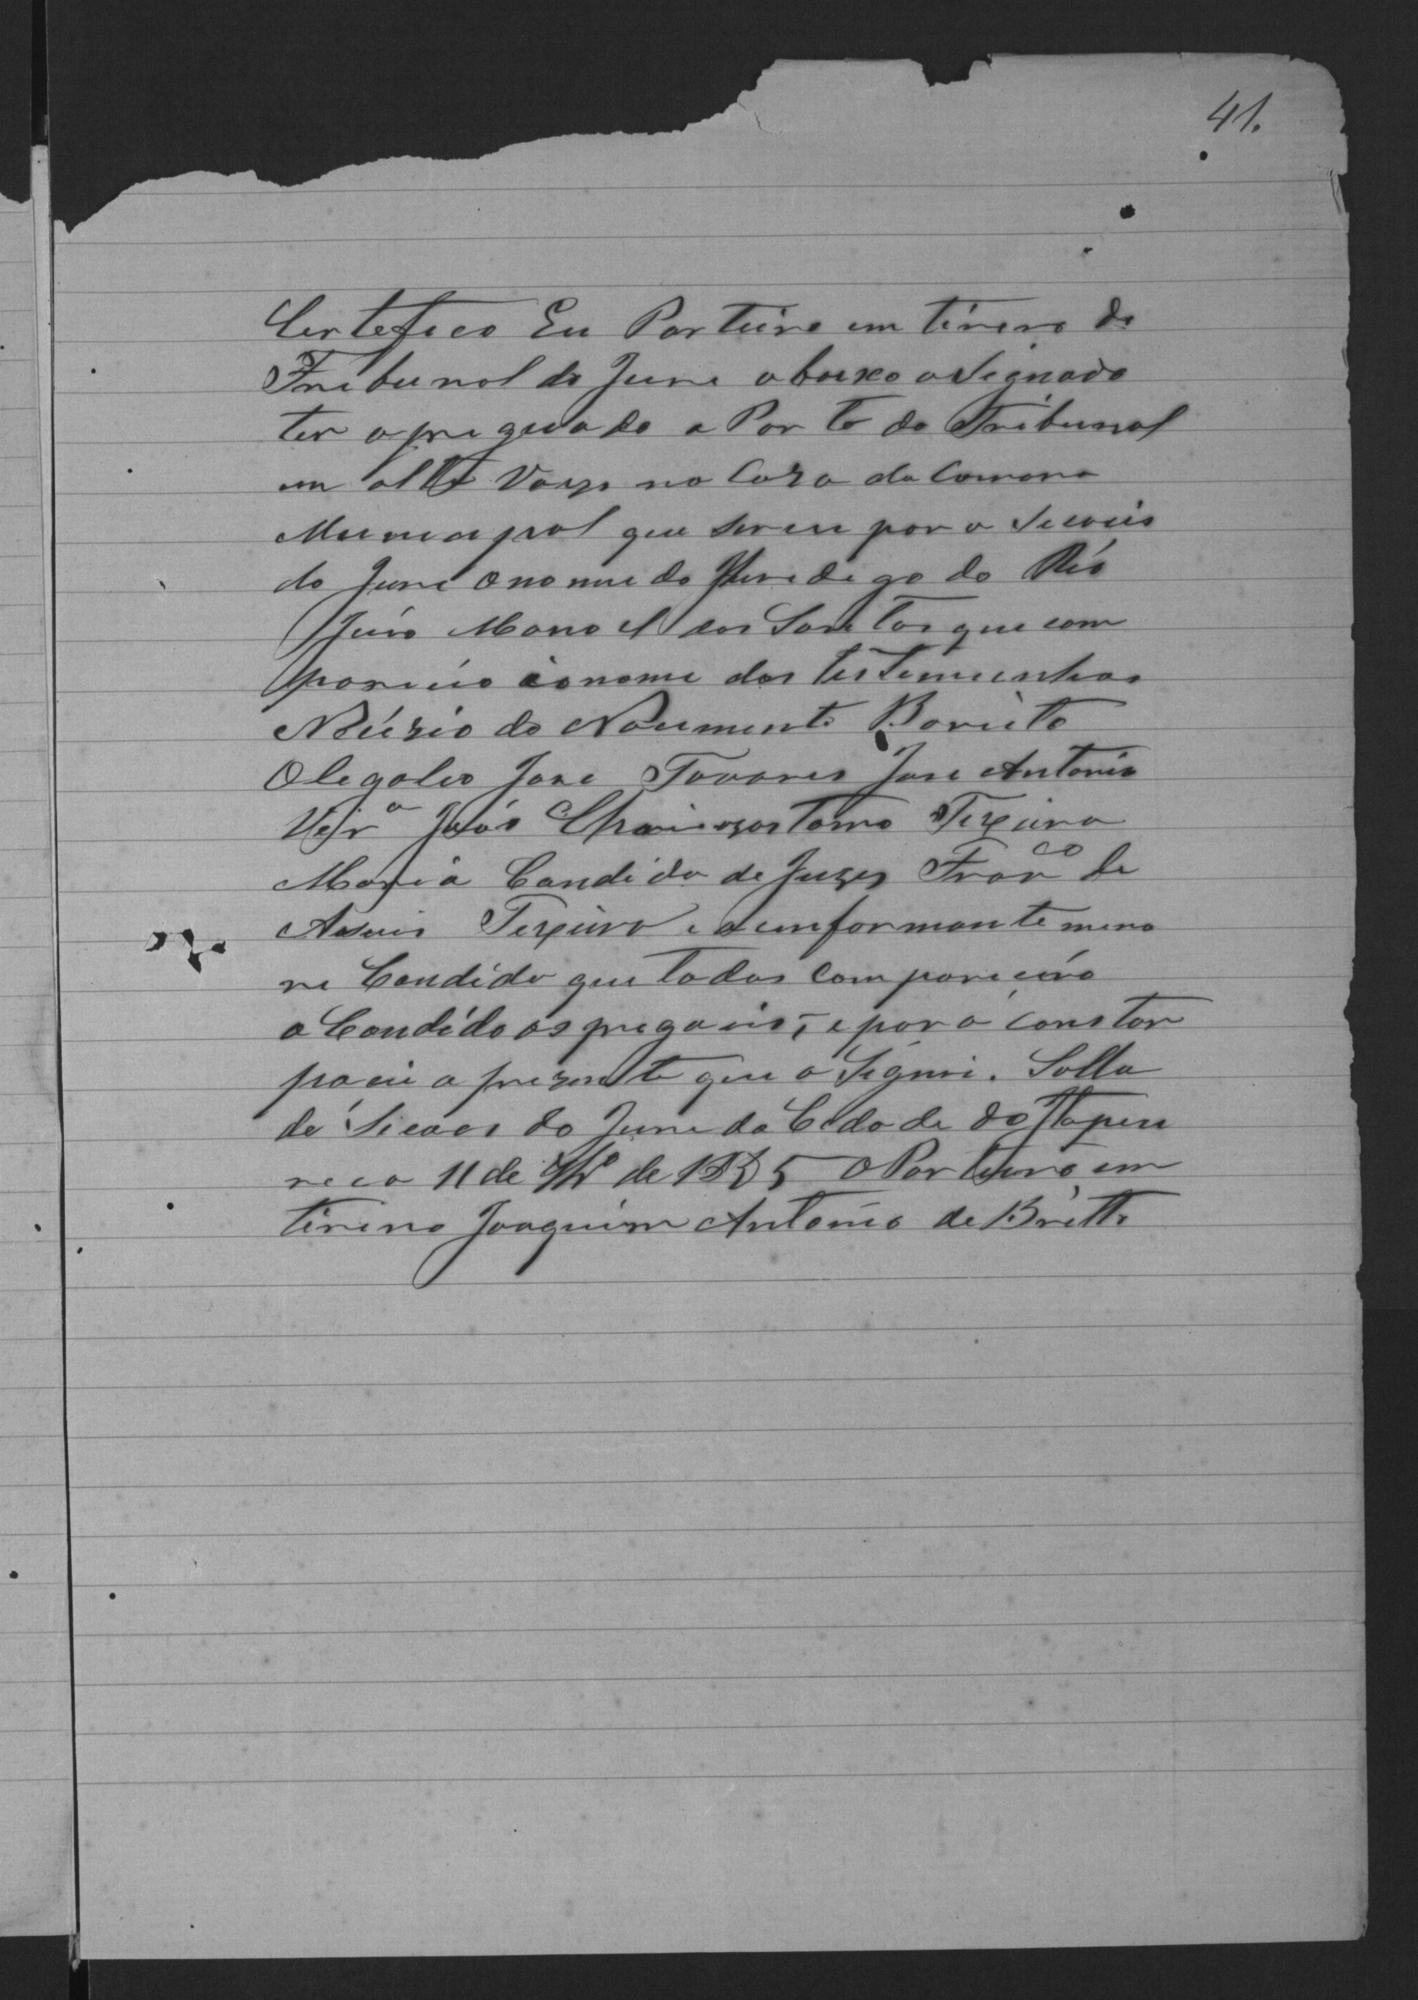 41.
Certefico Eu Porteiro em tirino do
Tribunal do Jure abaixo asignado
ter apreguado a Porta do Tribunal
em alta Vozs na Caza da Camara
Municipal que serve para Secois
do Jure o nome do
João Manoel dos Santos que com
pareceo e o nome das testemunhas
do Nacimento Bareto
Olegaleo Jose Tavares Jose Antonio
João Teixeira
Maria Candida de Juzus Franco de
Assiis Teixeira e a emformante meno
re Candida que todos compareceirão
a Candida os pregois, e para constar
pacei a prezente que a Signei. Salla
de Secoes do Jure da Cidade do Itapecu
reco 11 de de 1885 O Porteiro em
tirino Joaquim Antonio de Britto